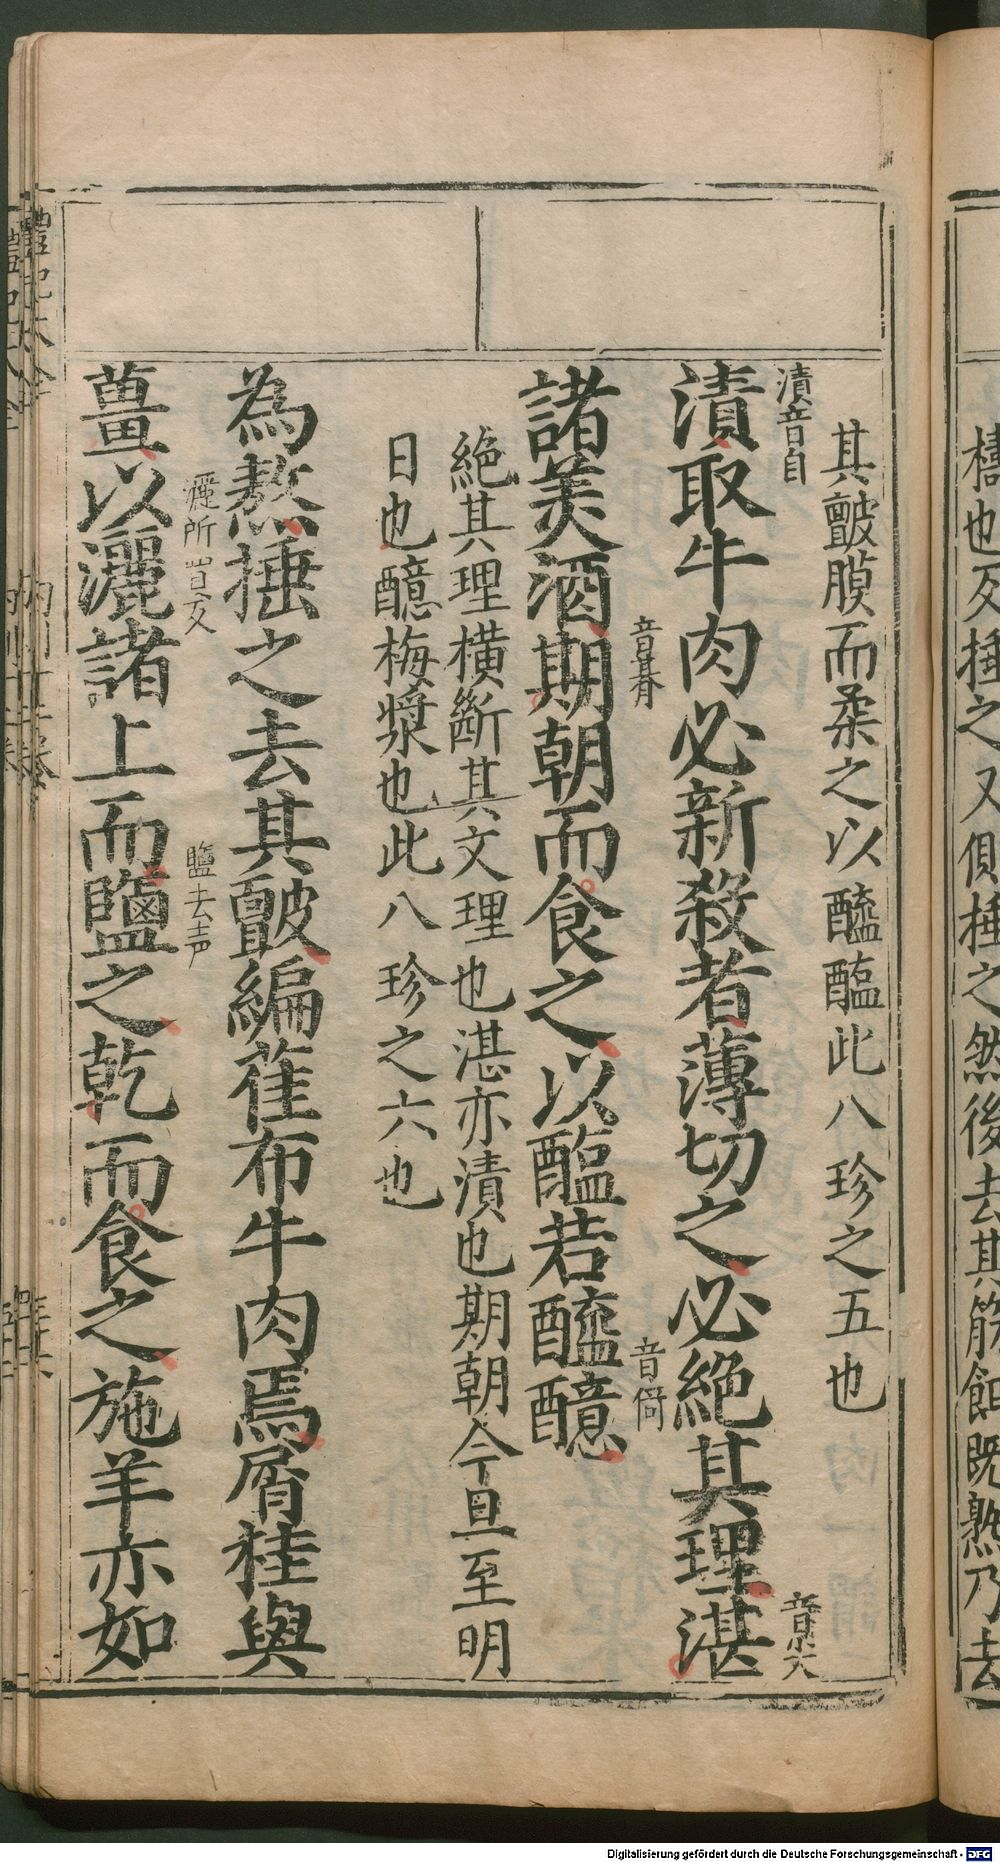 擣也反捶之又側捶之然後去其筋餌既熟乃去
其皽膜而柔之以醯醢此八珍之五也
漬音自
漬取牛肉必新殺者薄切之必絶其理湛
音尖
諸美酒期朝而食之以醢若醯醷
音朞
音倚
絶其理横斷其文理也湛亦漬也期朝今旦至明
日也醷梅漿也此八珍之六也
為熬捶之去其皽編萑布牛肉焉屑桂與
薑以灑諸上而鹽之乾而食之施羊亦如
灑所買反
鹽去声
Digitalisierung gefördert durch die Deutsche Forschungsgemeinschaft - DFG